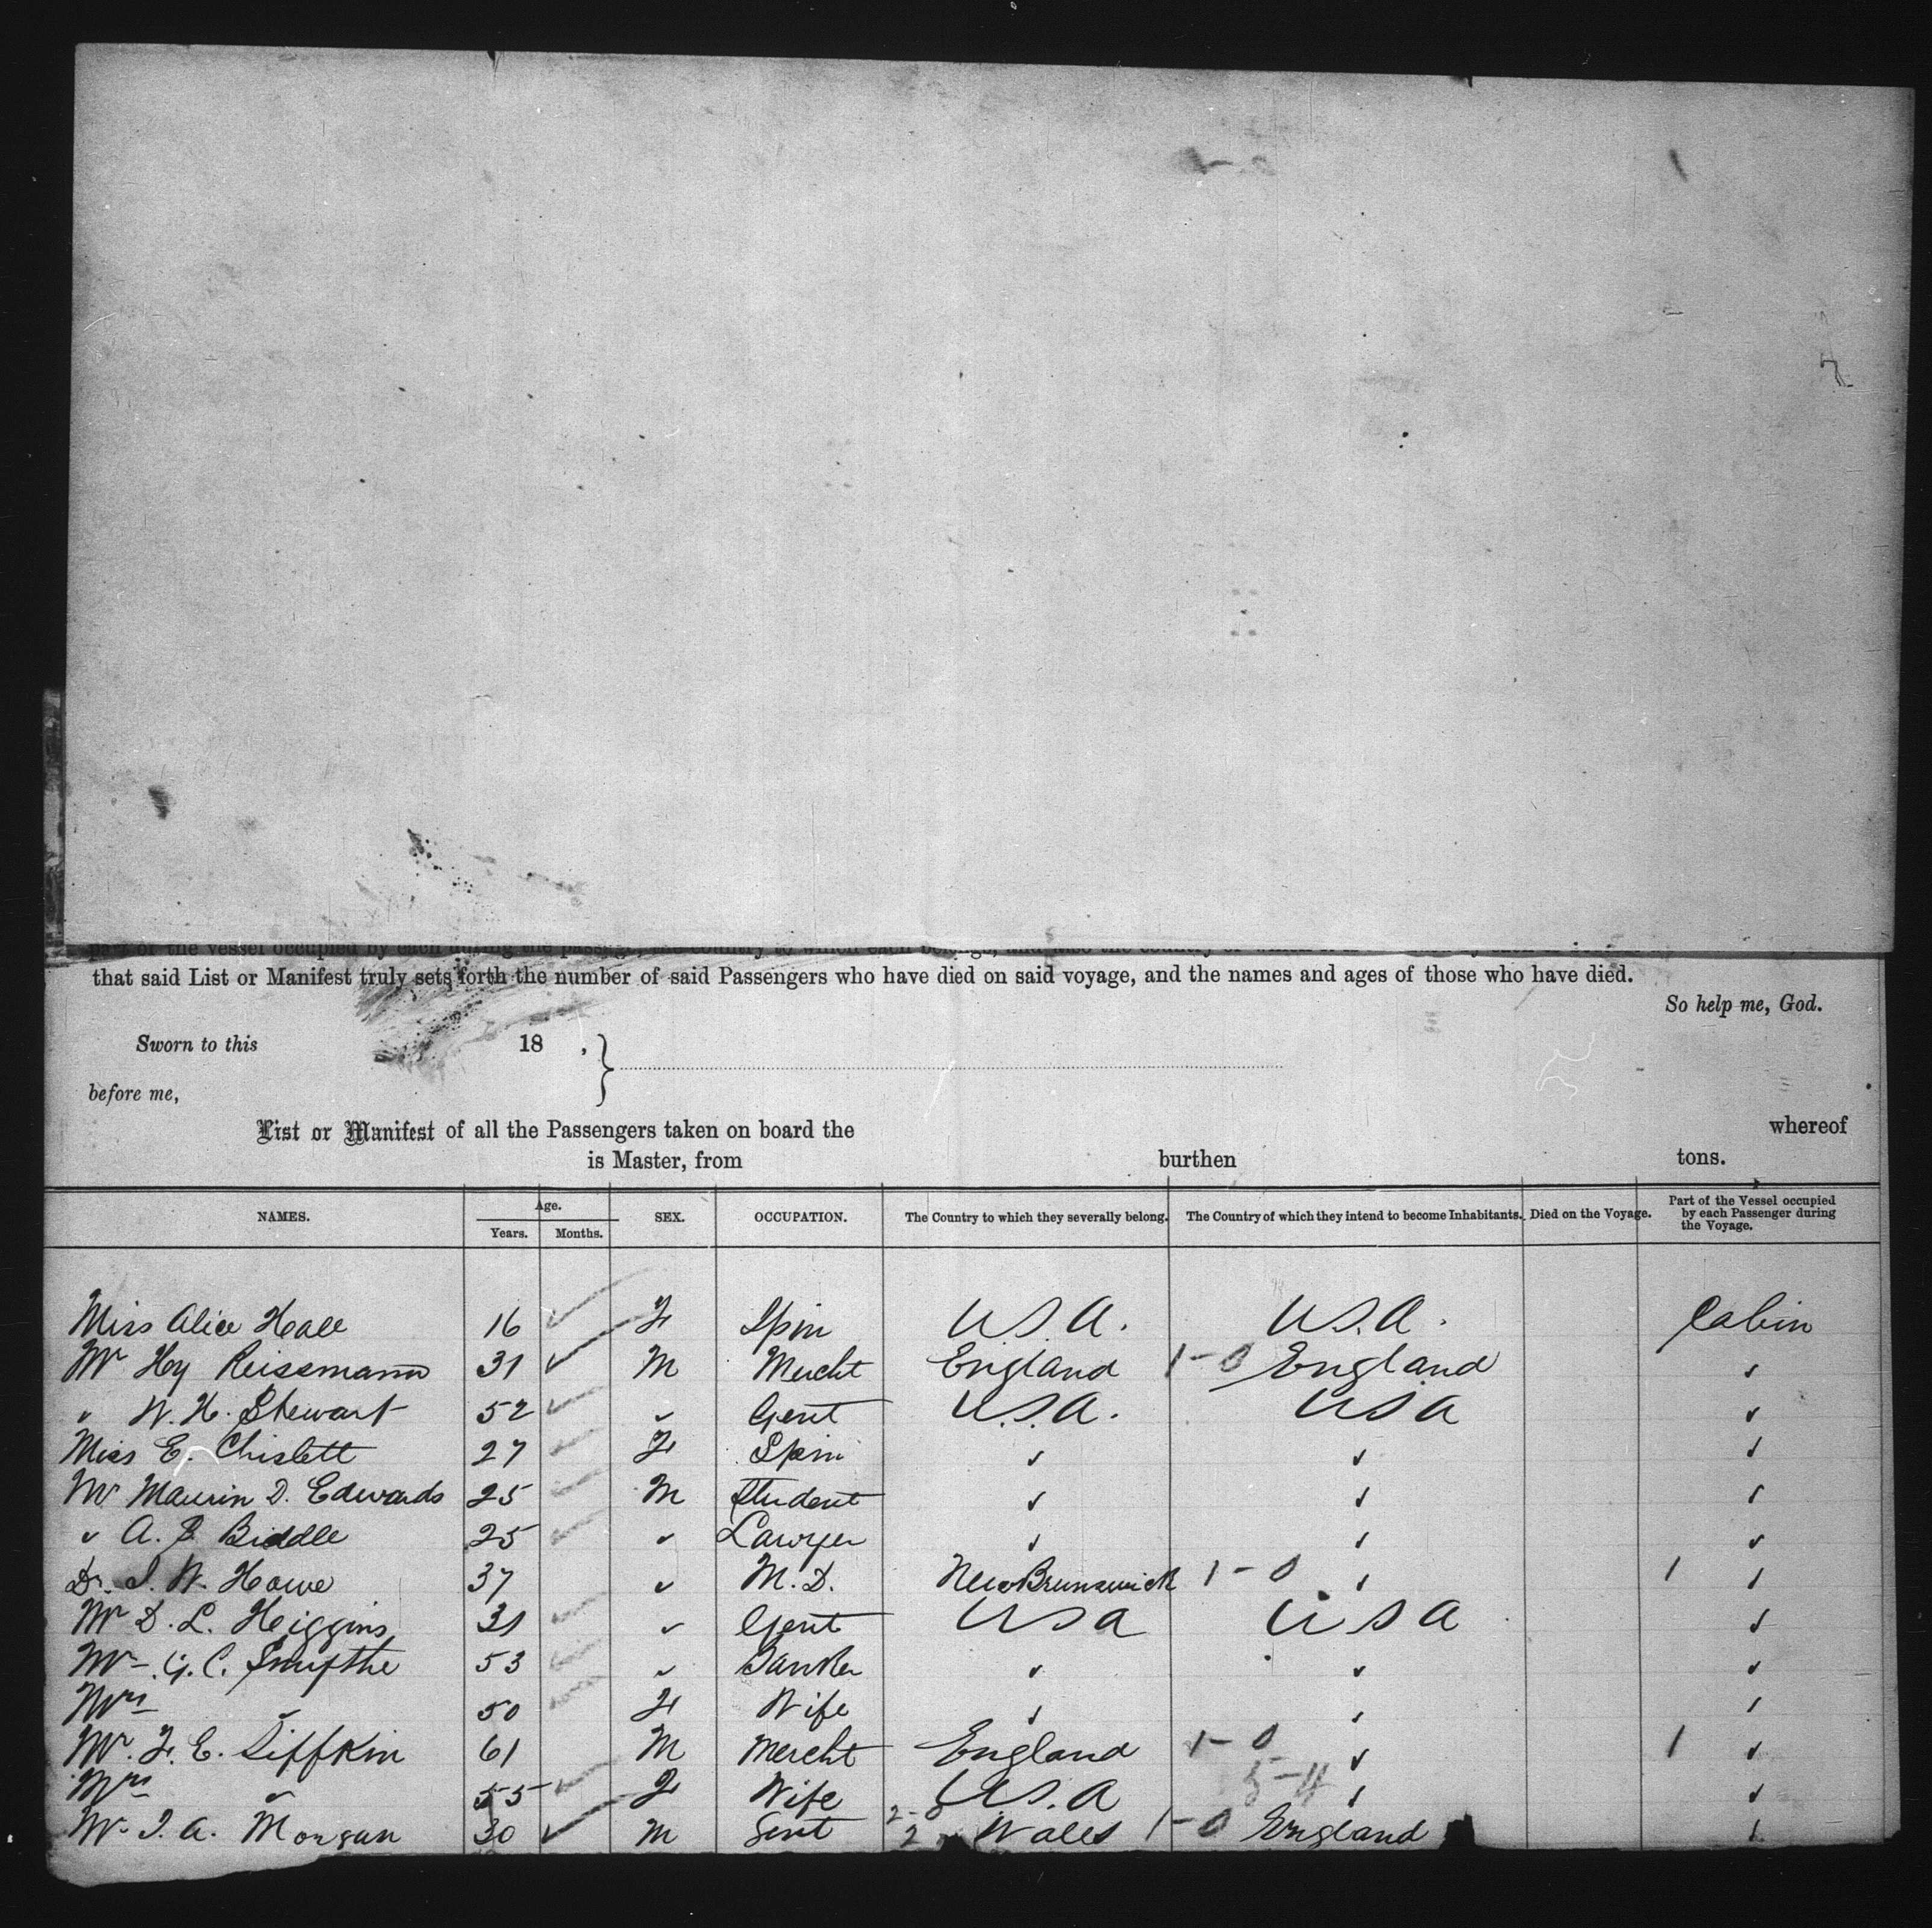 part of the vessel occupied by each during the passage, the country to which each belongs, and also the country of
that said List or Manifest truly sets forth the number of said Passengers who have died on said voyage, and the names and ages of those who have died.
So help me, God.
Sworn to this 18 ,
before me,
List or Manifest of all the Passengers taken on board the whereof
is Master, from burthen tons.
NAMES. Age. Years. Months. SEX. OCCUPATION. The Country to which they severally belong. The Country of which they intend to become Inhabitants. Died on the Voyage. Part of the Vessel occupied by each Passenger during the Voyage.
Miss Alice 16 ✓ F Spin U.S.A. U.S.A. Cabin
Mr Hy Reissmann 31 ✓ M Mercht England 1-0 England ✓
✓ W. H. Stewart 52 ✓ ✓ Gent U.S.A. USA ✓
Miss E. Chislett 27 ✓ F Spin ✓ ✓ ✓
Mr Maurin D. Edwards 25 ✓ M Student ✓ ✓ ✓
✓ A. Biddle 25 ✓ ✓ Lawyer ✓ ✓ ✓
Dr. W. Howe 37 ✓ M.D. New Brunswick 1-0 ✓ 1 ✓
Mr D. L. Higgins 31 ✓ ✓ Gent USA USA ✓
Mr G. C. Smythe 53 ✓ ✓ Banker ✓ ✓ ✓
Mrs ✓ 50 ✓ F Wife ✓ ✓ ✓
Mr. F. E. Siffkin 61 M Mercht England 1-0 ✓ 1 ✓
Mrs ✓ 55 ✓ F Wife U.S.A 5-4 ✓ ✓
Mr. A. Morgan 30 ✓ M Gent Wales 1-0 England ✓